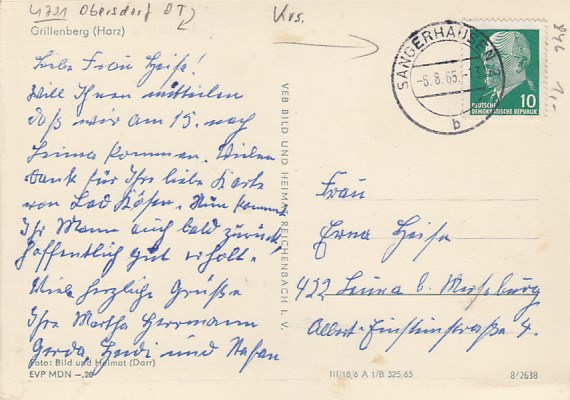 4791 Obersdorf OT
Krs.
846
Grillenberg (Harz)
SANGERHAUSEN 2
-6.8.65.-
b
DEUTSCHE
DEMOKRATISCHE REPUBLIK
10
Liebe Frau Heise!
Will Ihnen mitteilen
daß wir am 15. nach
Leuna kommen. Vielen
Dank für Ihre liebe Karte
von Bad Kösen. Nun kommt
Ihr Mann auch bald zurück,
hoffentlich gut erholt.
Viele herzliche Grüße
Ihre Martha Herrmann
Gerda, Heidi und Stefan
VEB BILD UND HEIMAT REICHENBACH I. V.
Frau
Erna Heise
422 Leuna b. Merseburg
Albert-Einsteinstraße 4.
Foto: Bild und Heimat (Darr)
EVP MDN -,20
III/18/6 A 1/B 325/65
8/2638